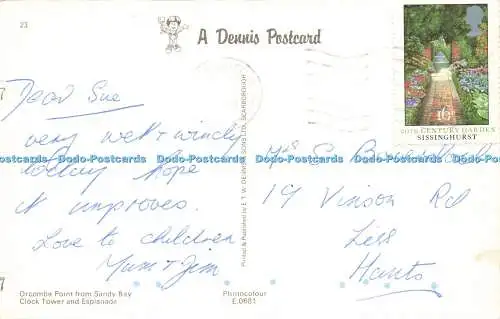 23
A Dennis Postcard
16P
20TH CENTURY GARDEN
SISSINGHURST
Dear Sue
very wet & windy
today hope
it improves.
Love to children
Mum & Jim
Mrs S
19 Vinson Rd
Liss
Hants
Dodo-Postcards Dodo-Postcards Dodo-Postcards Dodo-Postcards Dodo-Postcards Dodo-Postcards
Printed & Published by E. T. W. DENNIS & SONS LTD., SCARBOROUGH
Orcombe Point from Sandy Bay
Clock Tower and Esplanade
Photocolour
E.0681